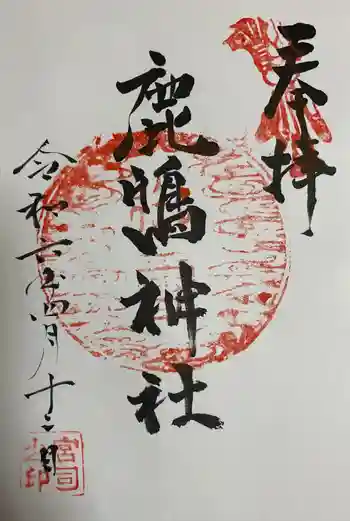 奉拝
鹿嶋神社
令和二年四月十二日
宮司之印